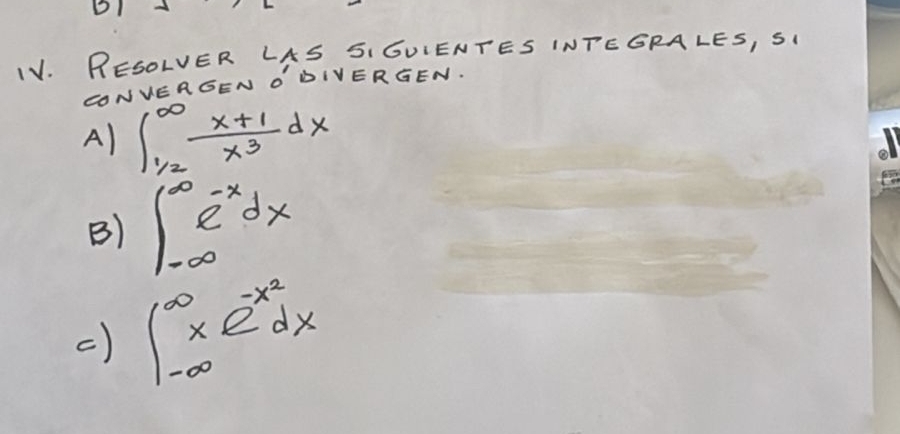 IV. RESOLVER LAS SIGUIENTES INTEGRALES, SI
CONVERGEN Ó DIVERGEN.
A) ∫_{1/2}^{∞} \frac{x+1}{x^3} dx
B) ∫_{-∞}^{∞} e^{-x} dx
C) ∫_{-∞}^{∞} x e^{-x^2} dx